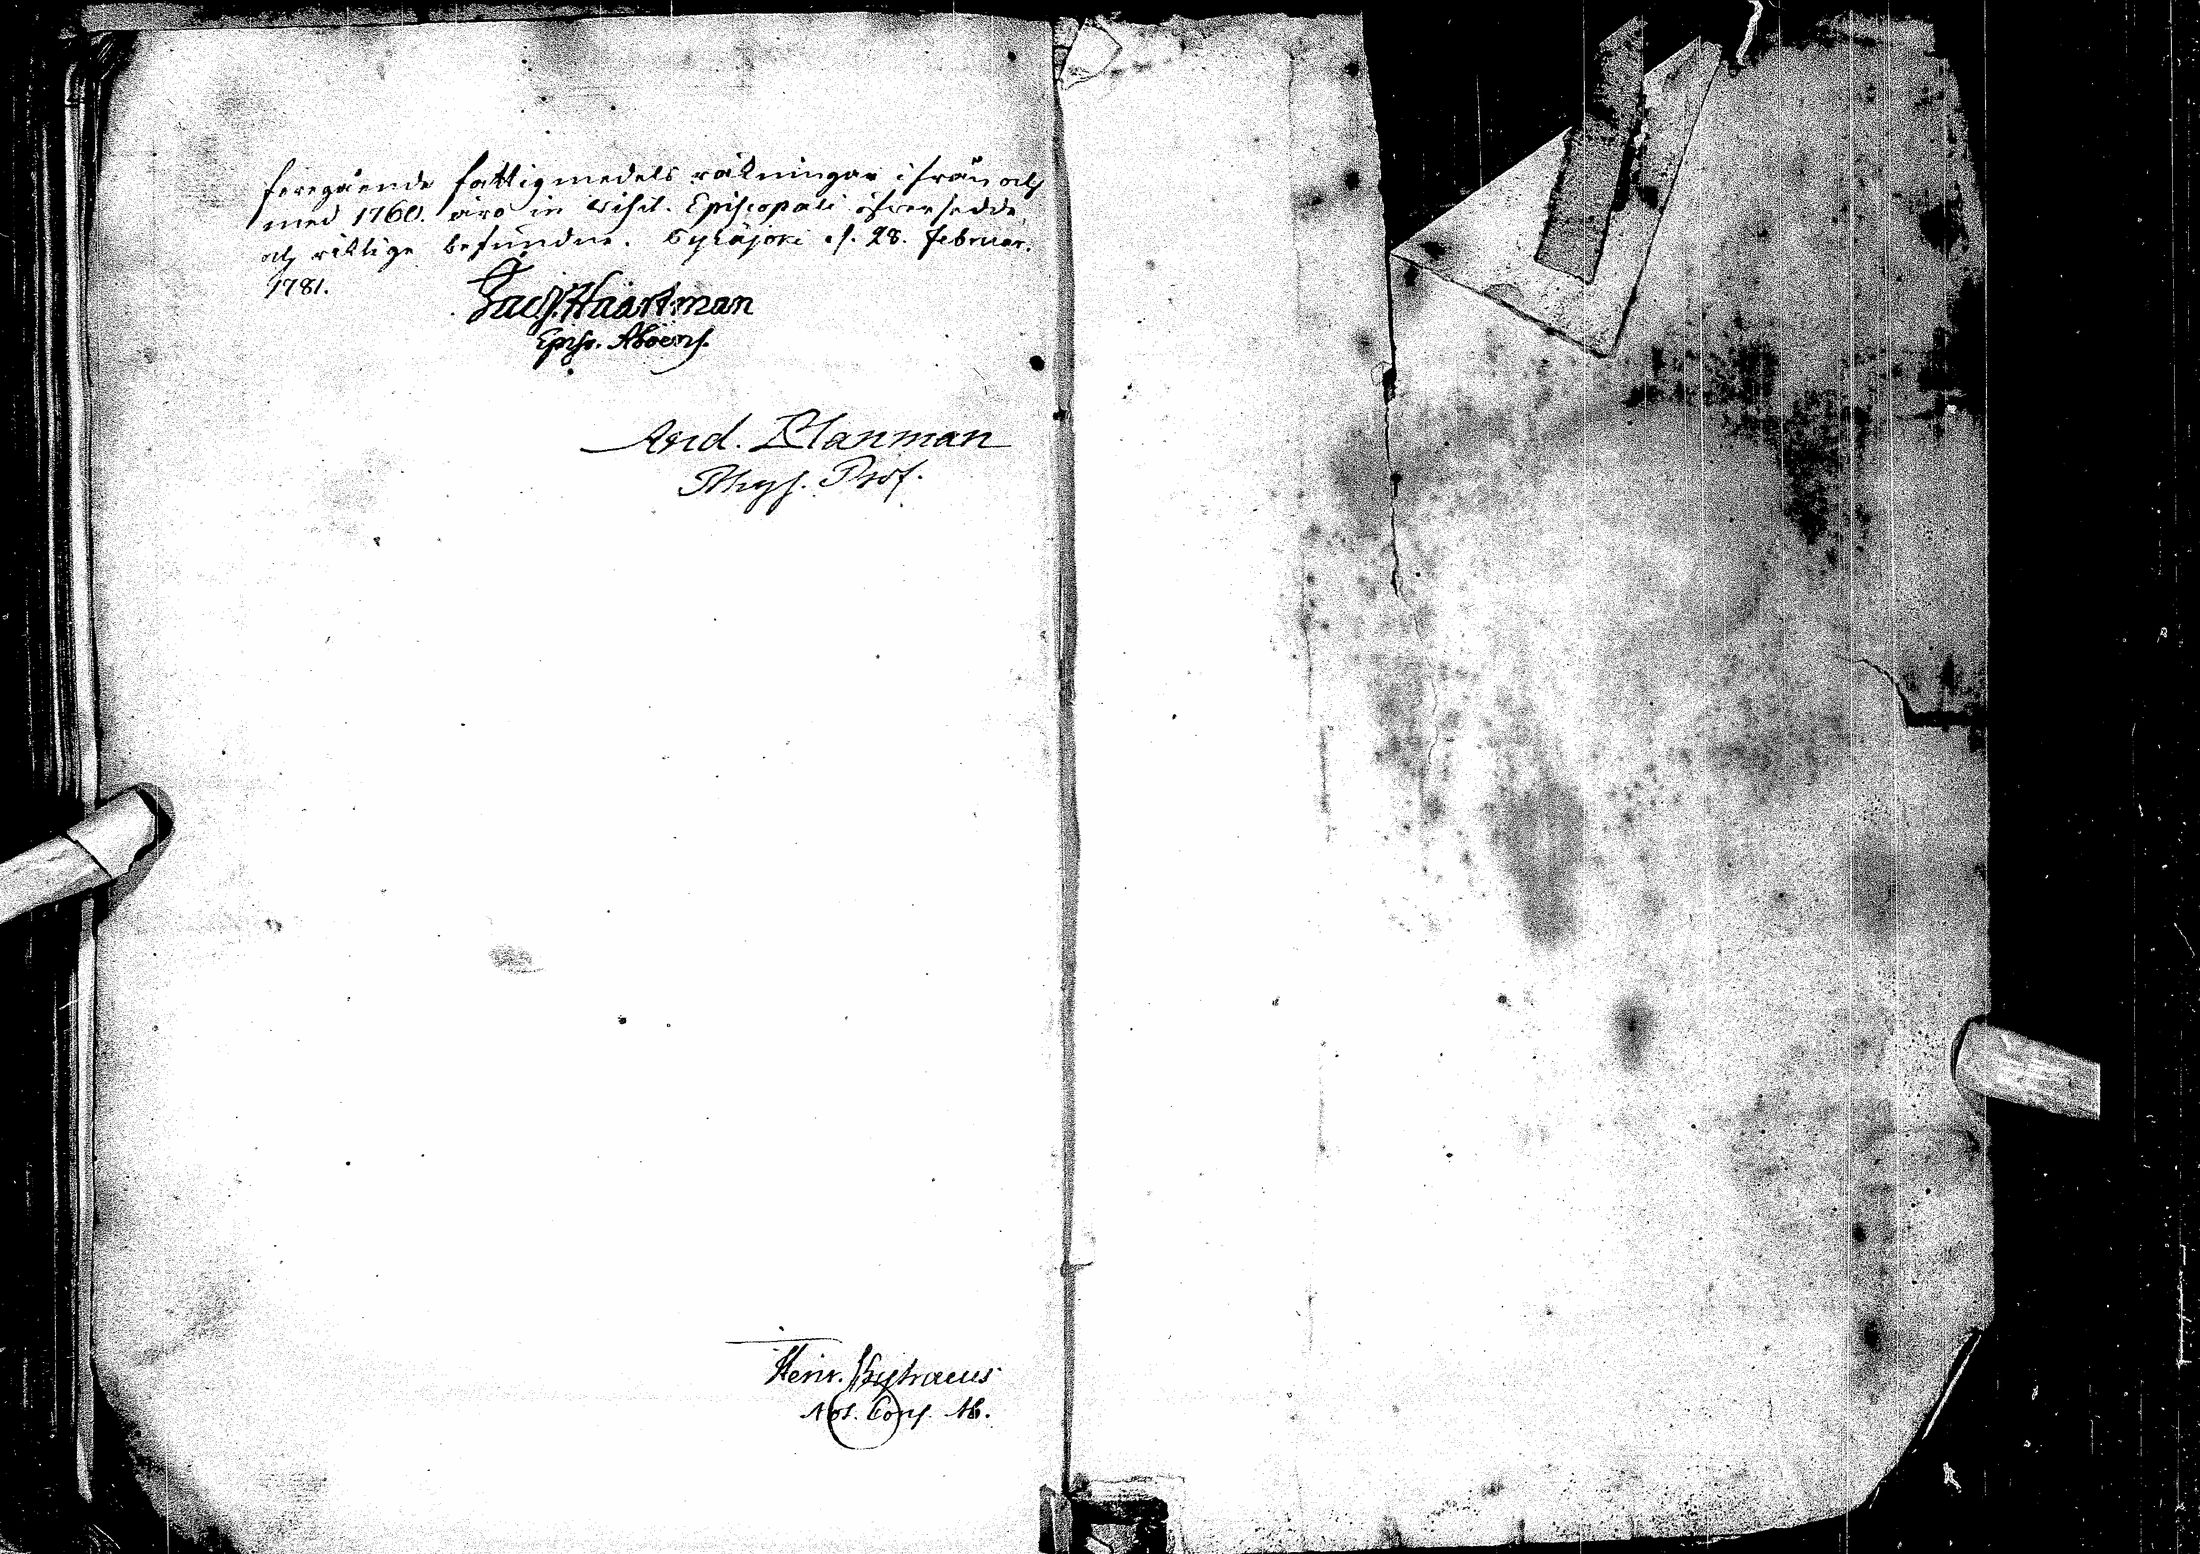 foregående fattigmedels räkningar ifrån och
med 1760. äro in Visit. Episcopali öfversedde,
och riktige befundne. Pyhäjoki d. 28. Februar.
1781.
Jac. Haartman
Episc. Aboens.
And. Planman
Phys. Prof.
Henr.
Not. Cons. Ab.